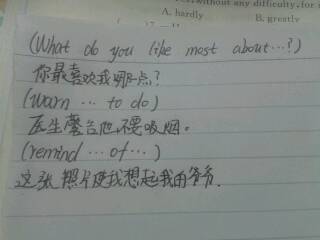 without any difficulty, for
A. hardly B. greatly
(What do you like most about…?)
你最喜欢我哪一点?
(warn … to do)
医生警告他,不要吸烟。
(remind … of …)
这张照片使我想起我的爷爷.